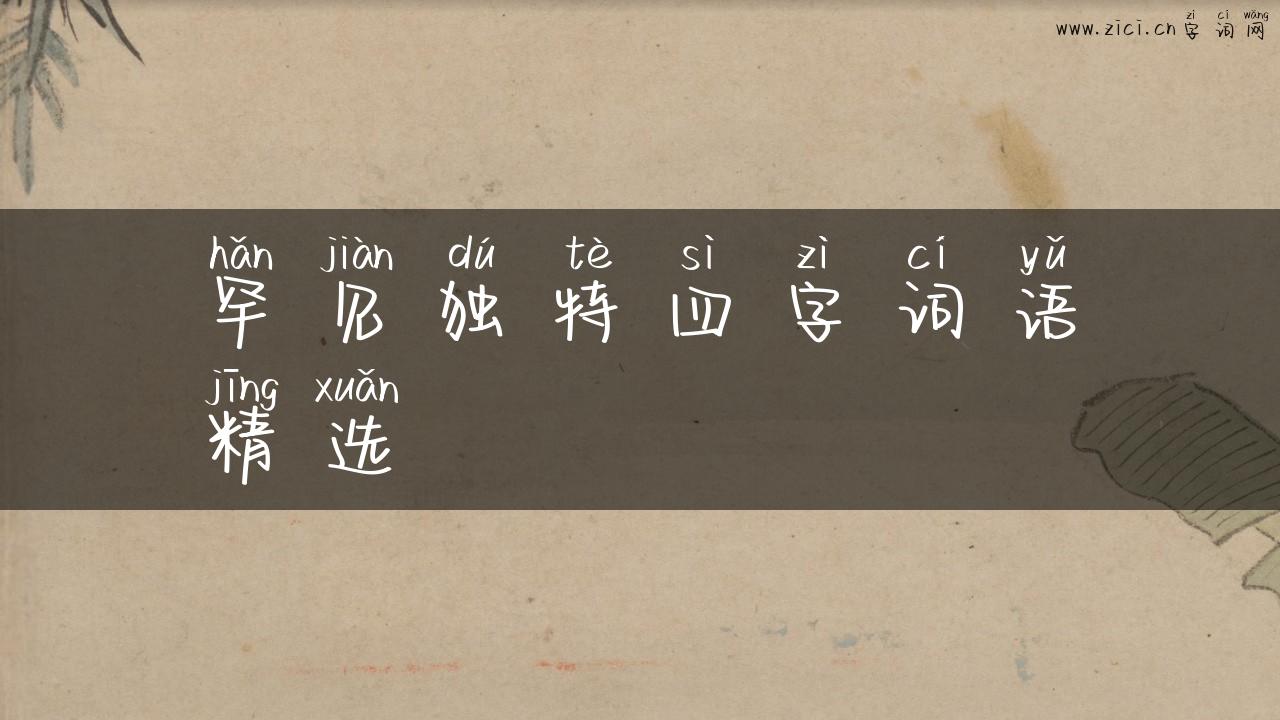 zì cí wǎng
www.zici.cn字词网
hǎn jiàn dú tè sì zì cí yǔ
罕见独特四字词语
jīng xuǎn
精选